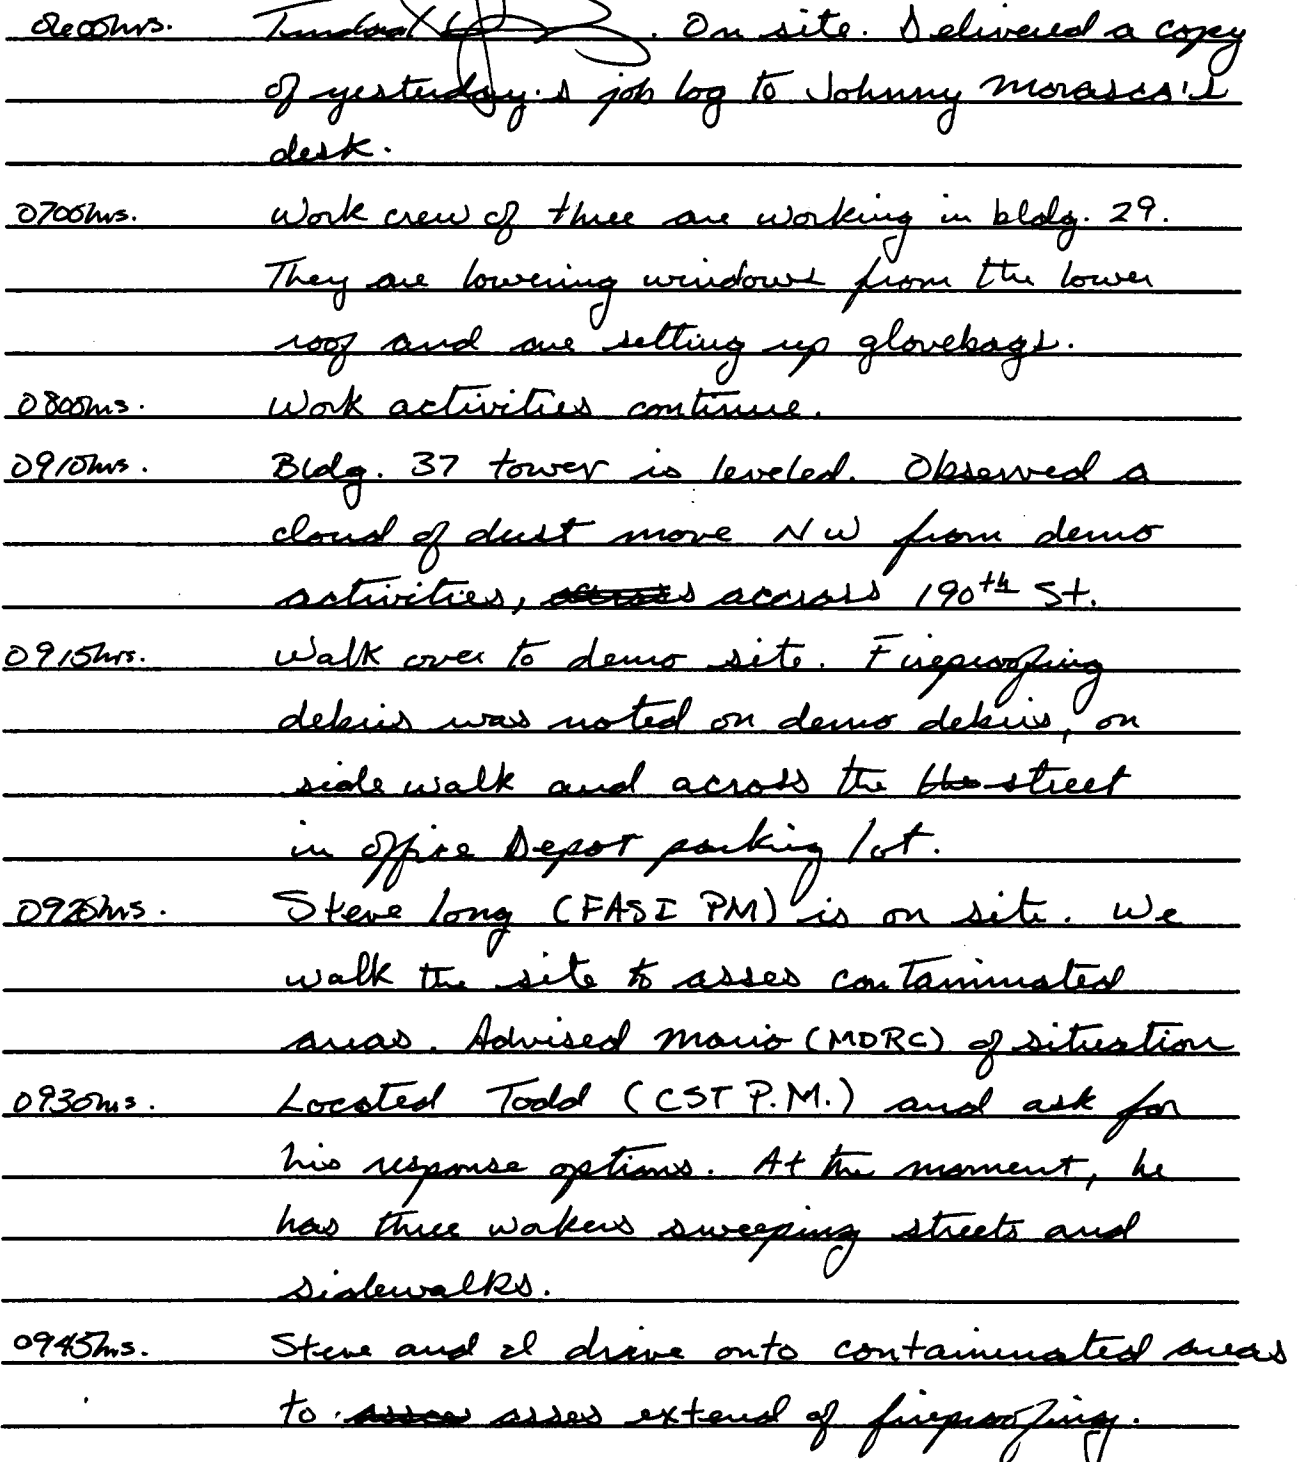 0600hrs. On site. Delivered a copy
of yesterday's job log to Johnny Morasco's
desk.
0700hrs. Work crew of three are working in bldg. 29.
They are lowering windows from the lower
roof and are setting up glovebags.
0800hrs. Work activities continue.
0910hrs. Bldg. 37 tower is leveled. Observed a
cloud of dust move NW from demo
activities, accross 190th St.
0915hrs. Walk over to demo site. Fireproofing
debris was noted on demo debris, on
sidewalk and across the street
in Office Depot parking lot.
0925hrs. Steve Long (FASI PM) is on site. We
walk the site to asses contaminated
areas. Advised Mario (MDRC) of situation
0930hrs. Located Todd (CST P.M.) and ask for
his response options. At the moment, he
has three wokers sweeping streets and
sidewalks.
0945hrs. Steve and I drive onto contaminated areas
to asses extend of fireproofing.